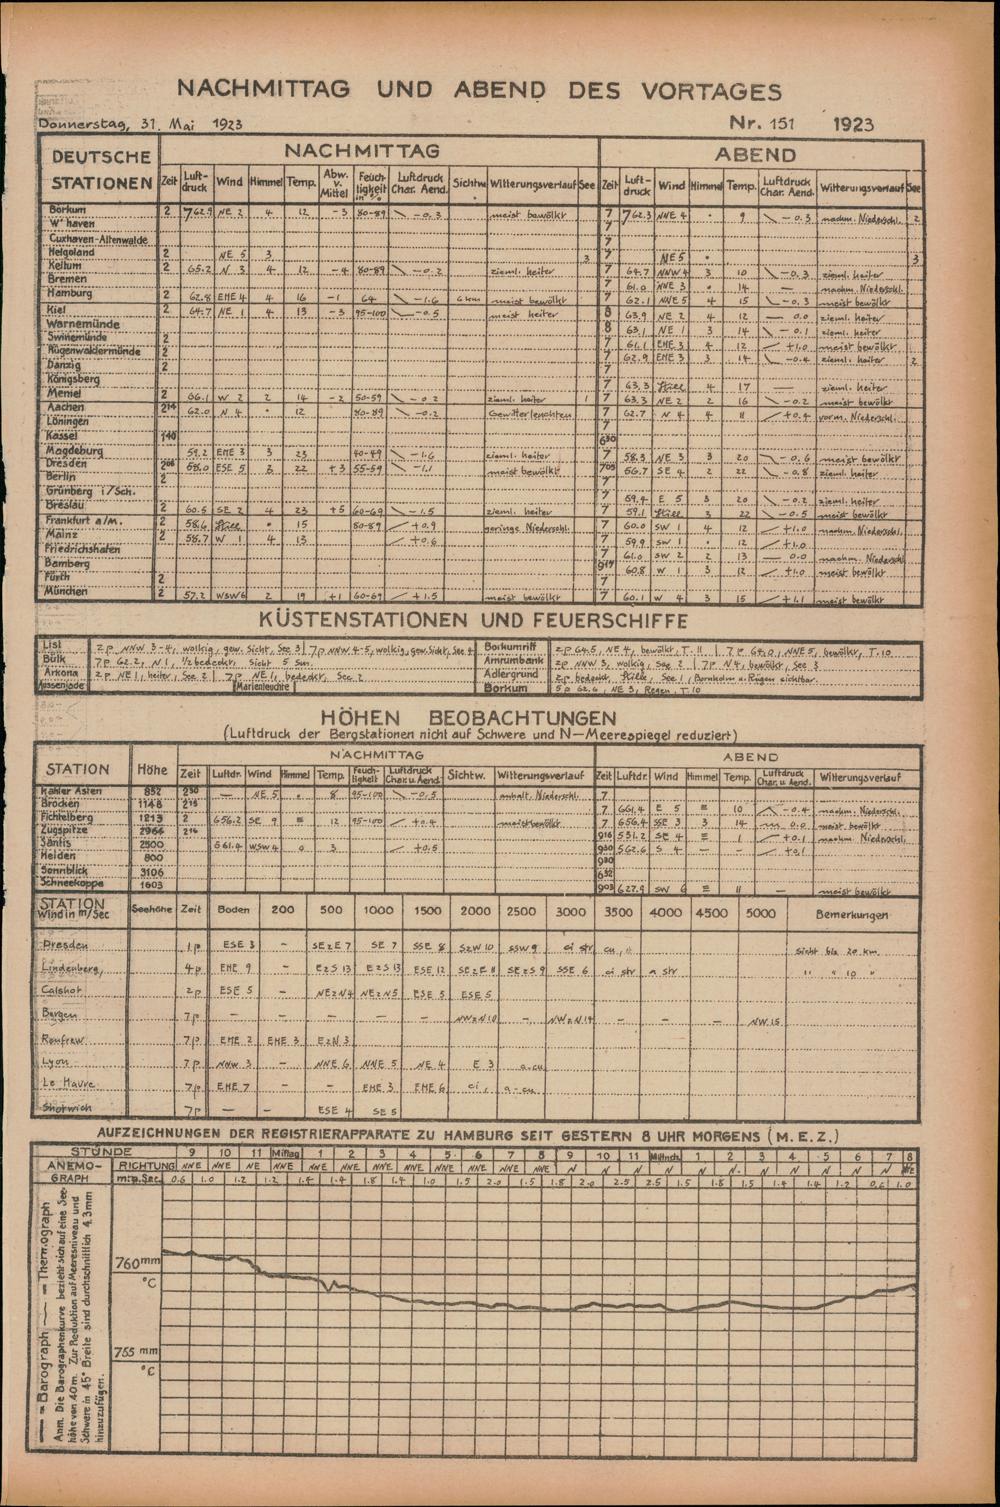 NACHMITTAG UND ABEND DES VORTAGES
Donnerstag, 31. Mai 1923 Nr. 151 1923
DEUTSCHE STATIONEN NACHMITTAG ABEND
Zeit Luft-druck Wind Himmel Temp. Abw. v. Mittel Feuch-tigkeit in % Luftdruck Char. Aend. Sichtw Witterungsverlauf See Zeit Luft-druck Wind Himmel Temp. Luftdruck Char. Aend. Witterungsverlauf See
Borkum 2 762.9 NE 2 4 12 -3 80-89 -0.3 meist bewölkt 7 762.3 NNE 4 9 -0.3 nachm. Niederschl. 2
W'haven 7
Cuxhaven-Altenwalde 7
Helgoland 2 NE 5 3 3 7 NE 5 3
Keitum 2 65.2 N 3 4 12 -4 80-89 -0.2 zieml. heiter 7 64.7 NNW 4 3 10 -0.3 zieml. heiter
Bremen 7 61.0 NNE 3 14 nachm. Niederschl.
Hamburg 2 62.8 ENE 4 4 16 -1 64 -1.6 6 km meist bewölkt 7 62.1 NNE 5 4 15 -0.3 meist bewölkt
Kiel 2 64.7 NE 1 4 13 -3 95-100 -0.5 meist heiter 8 63.9 NE 2 4 12 0.0 zieml. heiter
Warnemünde 8 63.1 NE 1 3 14 -0.1 zieml. heiter
Swinemünde 2 7 61.1 ENE 3 4 12 +1.0 meist bewölkt
Rügenwaldermünde 2 7 62.9 ENE 3 3 14 -0.4 zieml. heiter 2
Danzig 2 7
Königsberg 7 63.3 Stille 4 17 zieml. heiter
Memel 2 66.1 W 2 2 14 -2 50-59 -0.2 zieml. heiter 1 7 63.3 NE 2 2 16 -0.2 meist bewölkt
Aachen 2¹⁴ 62.0 N 4 12 80-89 -0.2 Gewitterleuchten 7 62.7 N 4 4 11 +0.4 vorm. Niederschl.
Löningen 7
Kassel 1⁴⁰ 6³⁰
Magdeburg 59.2 ENE 3 3 23 40-49 -1.6 zieml. heiter 7 58.3 NE 3 3 20 -0.6 meist bewölkt
Dresden 2⁰⁶ 58.0 ESE 5 3 22 +3 55-59 -1.1 meist bewölkt 7⁰⁵ 56.7 SE 4 2 22 -0.8 zieml. heiter
Berlin 2
Grünberg i/Sch. 7 59.4 E 5 3 20 -0.2 zieml. heiter
Breslau 2 60.5 SE 2 4 23 +5 60-69 -1.5 zieml. heiter 7 59.1 Stille 3 22 -0.5 meist bewölkt
Frankfurt a/M. 2 58.6 Stille 15 80-89 +0.9 geringe Niederschl. 7 60.0 SW 1 4 12 +1.0 nachm. Niederschl.
Mainz 2 58.7 W 1 4 13 +0.6 7 59.9 SW 1 12 +1.0
Friedrichshafen 7 61.0 SW 2 2 13 0.0 nachm. Niederschl.
Bamberg 9¹⁷ 60.8 W 1 3 12 +1.0 meist bewölkt
Fürth 2 7
München 2 57.2 WSW 6 2 19 +1 60-69 +1.5 meist bewölkt 7 60.1 W 4 3 15 +1.1 meist bewölkt
KÜSTENSTATIONEN UND FEUERSCHIFFE
List 2p NNW 3-4, wolkig, gew. Sicht, See 3 | 7p NNW 4-5, wolkig, gew. Sicht, See 4 Borkumriff 2p 64.5, NE 4, bewölkt, T. 11 | 7p 64.0, NNE 5, bewölkt, T. 10
Bülk 7p 62.2, N 1, ½ bedeckt, Sicht 5 Sm. Amrumbank 2p NNW 3, wolkig, See 2 | 7p N 4, bewölkt, See 3
Arkona 2p NE 1, heiter, See 2 | 7p NE 1, bedeckt, See 2 Adlergrund 2p bedeckt, Stille, See 1, Bornholm u. Rügen sichtbar.
Aussenjade Marienleuchte Borkum 5p 62.6, NE 3, Regen, T. 10
HÖHEN BEOBACHTUNGEN
(Luftdruck der Bergstationen nicht auf Schwere und N-Meerespiegel reduziert)
STATION Höhe NACHMITTAG ABEND
Zeit Luftdr. Wind Himmel Temp. Feuch-tigkeit Luftdruck Char. u. Aend. Sichtw. Witterungsverlauf Zeit Luftdr. Wind Himmel Temp. Luftdruck Char. u. Aend. Witterungsverlauf
Kahler Asten 852 2³⁰ NE 5 8 95-100 -0.5 anhalt. Niederschl. 7
Brocken 1148 2¹⁵ 7 661.4 E 5 ≡ 10 -0.4 nachm. Niederschl.
Fichtelberg 1213 2 656.2 SE 9 ≡ 12 95-100 +0.4 meist bewölkt 7 656.4 SSE 3 3 14 0.0 meist bewölkt
Zugspitze 2964 2¹⁶ 9¹⁶ 531.2 SE 4 ≡ 1 +0.1 nachm. Niederschl.
Säntis 2500 561.0 WSW 4 0 3 +0.5 9³⁰ 562.6 S 4 - - +0.1
Heiden 800 9³⁰
Sonnblick 3106 6³²
Schneekoppe 1603 9⁰³ 627.9 SW 6 ≡ 11 - meist bewölkt
STATION Wind in m/Sec Seehöhe Zeit Boden 200 500 1000 1500 2000 2500 3000 3500 4000 4500 5000 Bemerkungen
Dresden 1p ESE 3 - SEzE 7 SE 7 SSE 8 SzW 10 SSW 9 ci str cu, Sicht bis 20 km.
Lindenberg, 4p ENE 9 - EzS 13 EzS 13 ESE 12 SEzE 11 SEzS 9 SSE 6 ci str a str " " 10 "
Calshot 2p ESE 5 - NEzN 4 NEzN 5 ESE 5 ESE 5
Bergen 7p - - - - - NWzN 10 - NWzN 14 - - - NW 15
Renfrew 7p ENE 2 ENE 3 EzN 3
Lyon 7p NNW 3 NNE 6 NNE 5 NE 4 E 3 a-cu
Le Havre 7p ENE 7 - - ENE 3 ENE 6 ci, a-cu
Shotwich 7p - - ESE 4 SE 5
AUFZEICHNUNGEN DER REGISTRIERAPPARATE ZU HAMBURG SEIT GESTERN 8 UHR MORGENS (M.E.Z.)
STUNDE 9 10 11 Mittag 1 2 3 4 5 6 7 8 9 10 11 Mittnch. 1 2 3 4 5 6 7 8
ANEMO-GRAPH RICHTUNG NNE NNE NNE NNE NNE NNE NNE NNE NNE NNE NNE NNE N N N N N N N N N N N NE
m.p.Sec. 0.6 1.0 1.2 1.2 1.4 1.4 1.8 1.4 1.0 1.5 2.0 1.5 1.8 2.0 2.5 2.5 1.5 1.8 1.5 1.4 1.4 1.2 0.6 1.0
760 mm
°C
755 mm
°C
Barograph Thermograph
Anm. Die Barographenkurve bezieht sich auf eine See-
höhe von 40m. Zur Reduktion auf Meeresniveau und
Schwere in 45° Breite sind durchschnittlich 4.3 mm
hinzuzufügen.